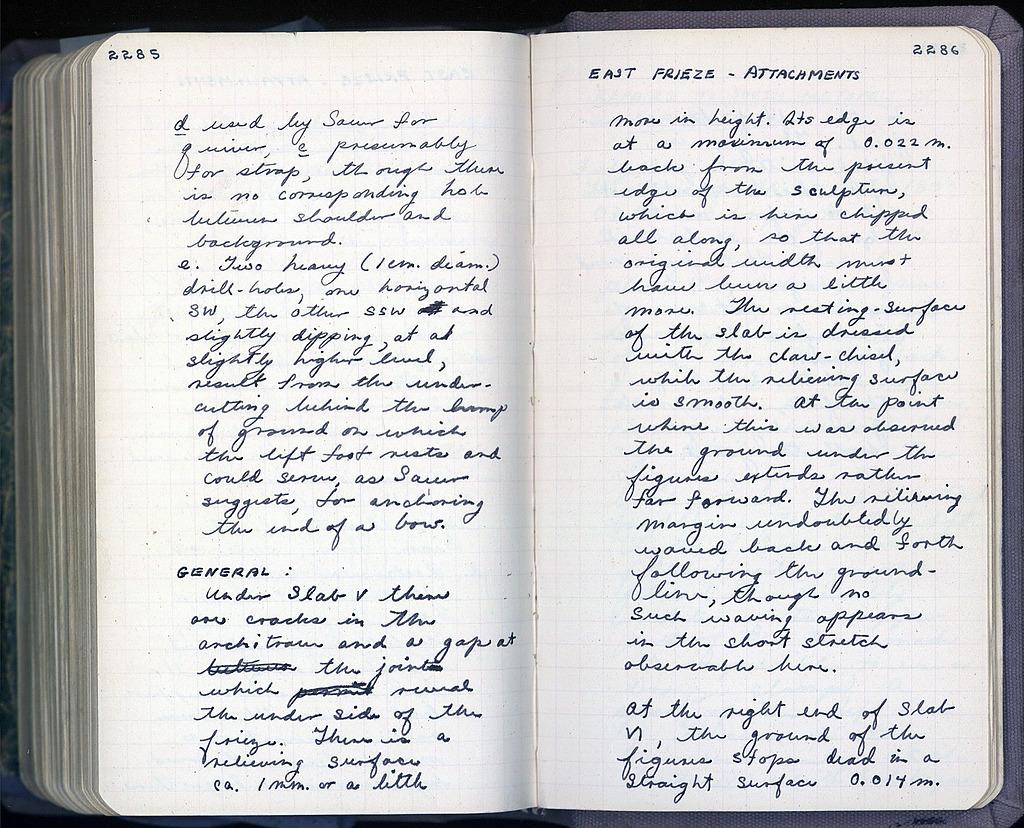 2285
d used by Sauer for
quiver, c presumably
for strap, though there
is no corresponding hole
between shoulder and
background.
e. Two heavy (1 cm. diam.)
drill-holes, one horizontal
SW, the other SSW and
slightly dipping, at a
slightly higher level,
result from the under-
cutting behind the hump
of ground on which
the left foot rests and
could serve, as Sauer
suggests, for anchoring
the end of a bow.
GENERAL:
Under Slab V there
are cracks in the
architrave and a gap at
between the joint
which permit reveal
the under side of the
frieze. There is a
relieving surface
ca. 1 mm. or a little
2286
EAST FRIEZE - ATTACHMENTS
more in height. Its edge is
at a maximum of 0.022 m.
back from the present
edge of the sculpture,
which is here chipped
all along, so that the
original width must
have been a little
more. The resting-surface
of the slab is dressed
with the claw-chisel,
while the relieving surface
is smooth. At the point
where this was observed
the ground under the
figures extends rather
far forward. The relieving
margin undoubtedly
waved back and forth
following the ground-
line, though no
such waving appears
in the short stretch
observable here.
At the right end of Slab
VI, the ground of the
figures stops dead in a
straight surface 0.014 m.